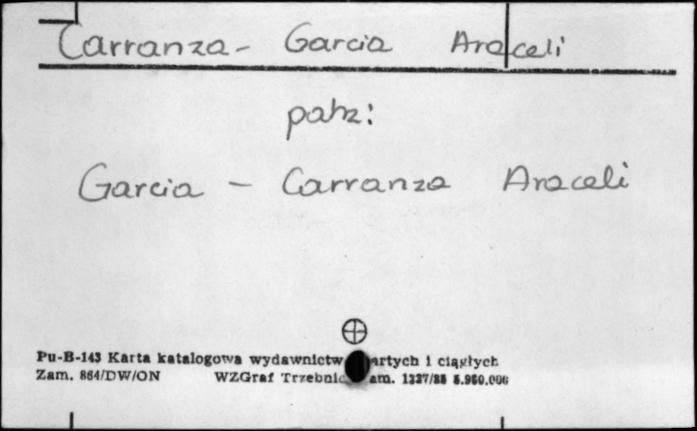 Carranza- Garcia Araceli
patrz:
Garcia - Carranza Araceli
Pu-B-143 Karta katalogowa wydawnictw artych i ciągłych
Zam. 864/DW/ON WZGraf Trzebnic am.